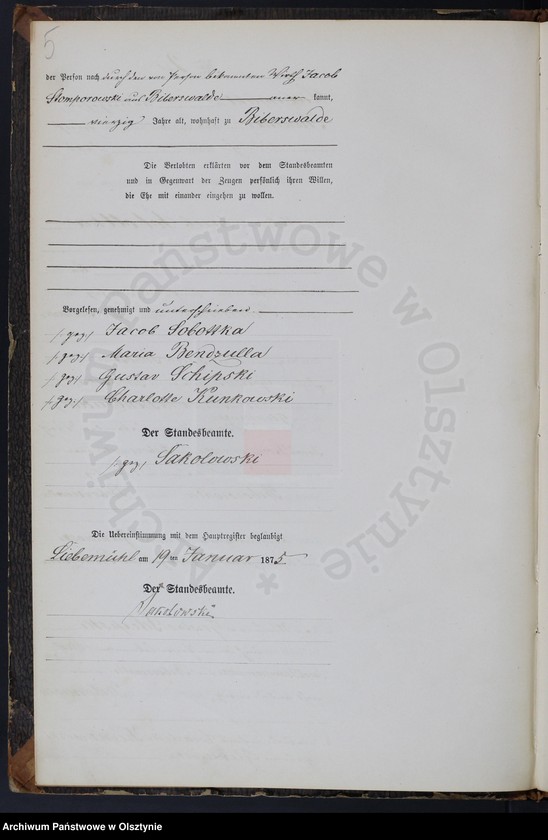 5
der Person nach durch den von Person bekannten Wirth Jacob
Stomporowski aus Biberswalde aner kannt,
vierzig Jahre alt, wohnhaft zu Biberswalde
Die Verlobten erklärten vor dem Standesbeamten
und in Gegenwart der Zeugen persönlich ihren Willen,
die Ehe mit einander eingehen zu wollen.
Vorgelesen, genehmigt und unterschrieben
/:gez:/ Jacob Sobottka
/:gez:/ Maria Bendzulla
/:gez:/ Gustav Schipski
/:gez:/ Charlotte Kunkowski
Der Standesbeamte.
/:gez:/ Sakolowski
Die Uebereinstimmung mit dem Hauptregister beglaubigt
Liebemühl am 19 ten Januar 1875
Der Standesbeamte.
Sakolowski
Archiwum Państwowe w Olsztynie *
Archiwum Państwowe w Olsztynie